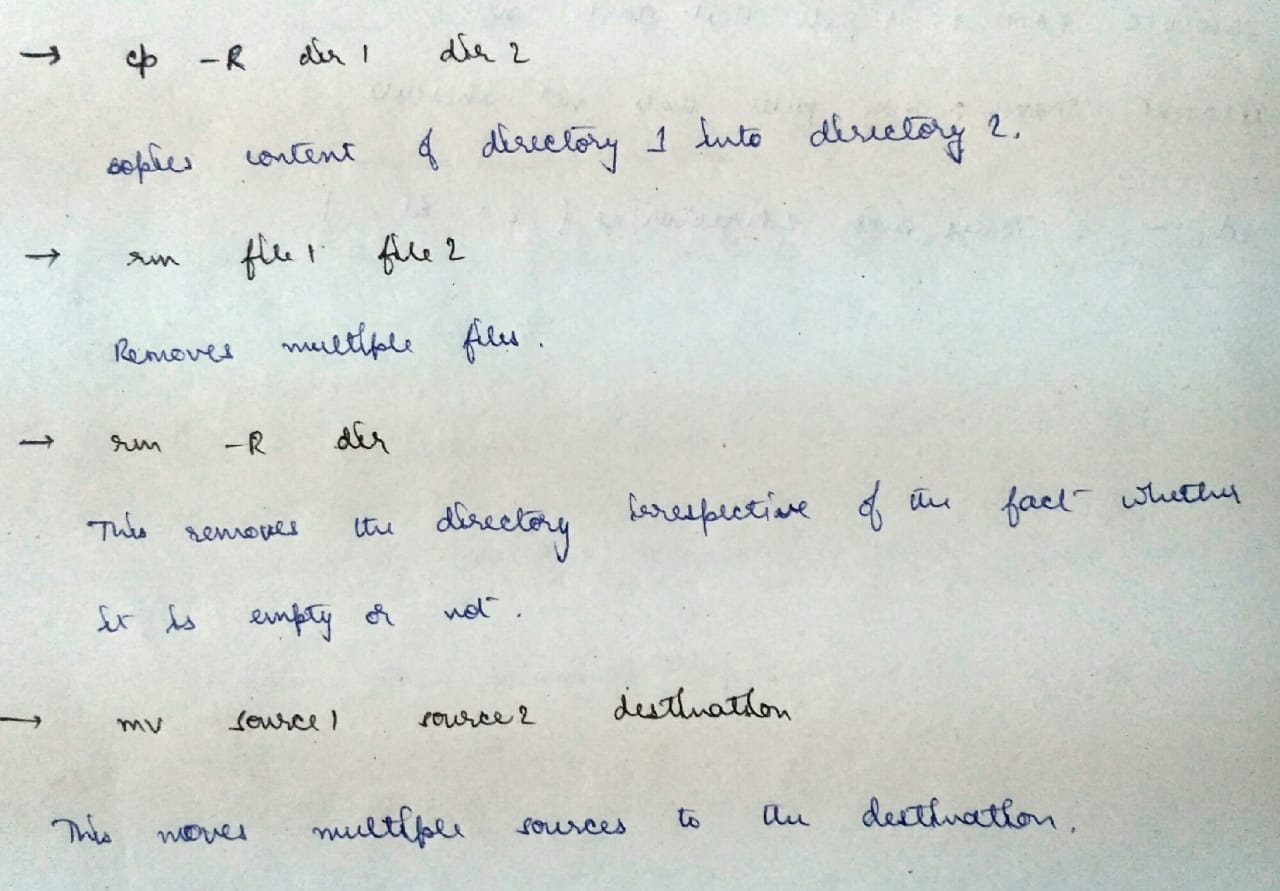 → cp -R dir 1 dir 2
copies content of directory 1 into directory 2.
→ rm file 1 file 2
Removes multiple files.
→ rm -R dir
This removes the directory irrespective of the fact whether
it is empty or not.
→ mv source 1 source 2 destination
This moves multiple sources to the destination.